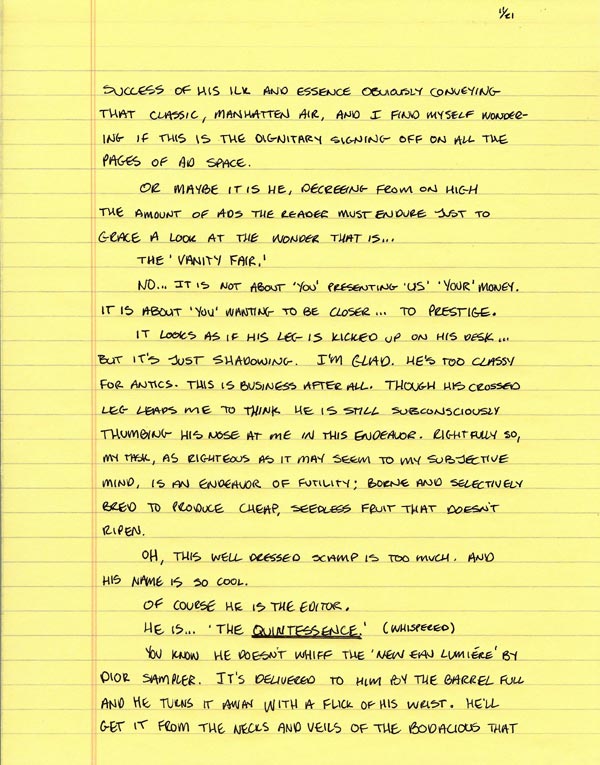 11/21
SUCCESS OF HIS ILK AND ESSENCE OBVIOUSLY CONVEYING
THAT CLASSIC, MANHATTEN AIR, AND I FIND MYSELF WONDER-
ING IF THIS IS THE DIGNITARY SIGNING OFF ON ALL THE
PAGES OF AD SPACE.
OR MAYBE IT IS HE, DECREEING FROM ON HIGH
THE AMOUNT OF ADS THE READER MUST ENDURE JUST TO
GRACE A LOOK AT THE WONDER THAT IS...
THE 'VANITY FAIR.'
NO... IT IS NOT ABOUT 'YOU' PRESENTING 'US' 'YOUR' MONEY.
IT IS ABOUT 'YOU' WANTING TO BE CLOSER... TO PRESTIGE.
IT LOOKS AS IF HIS LEG IS KICKED UP ON HIS DESK...
BUT IT'S JUST SHADOWING. I'M GLAD. HE'S TOO CLASSY
FOR ANTICS. THIS IS BUSINESS AFTER ALL. THOUGH HIS CROSSED
LEG LEADS ME TO THINK HE IS STILL SUBCONSCIOUSLY
THUMBING HIS NOSE AT ME IN THIS ENDEAVOR. RIGHTFULLY SO,
MY TASK, AS RIGHTEOUS AS IT MAY SEEM TO MY SUBJECTIVE
MIND, IS AN ENDEAVOR OF FUTILITY; BORNE AND SELECTIVELY
BRED TO PRODUCE CHEAP, SEEDLESS FRUIT THAT DOESN'T
RIPEN.
OH, THIS WELL DRESSED SCAMP IS TOO MUCH. AND
HIS NAME IS SO COOL.
OF COURSE HE IS THE EDITOR.
HE IS... 'THE QUINTESSENCE.' (WHISPERED)
YOU KNOW HE DOESN'T WHIFF THE 'NEW EAU LUMIÉRE' BY
DIOR SAMPLER. IT'S DELIVERED TO HIM BY THE BARREL FULL
AND HE TURNS IT AWAY WITH A FLICK OF HIS WRIST. HE'LL
GET IT FROM THE NECKS AND VEILS OF THE BODACIOUS THAT